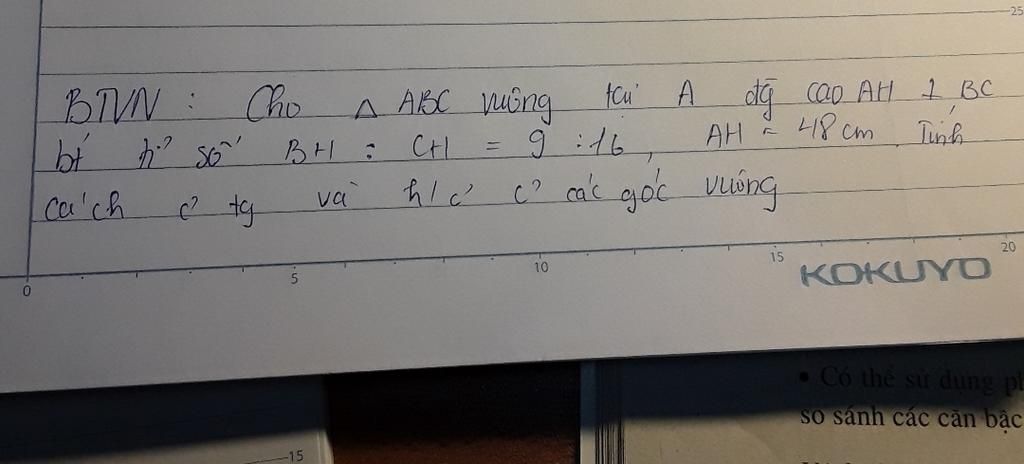 25
BTVN : Cho △ ABC vuông tại A đg cao AH ⊥ BC
bt h² số BH : CH = 9 : 16, AH = 48 cm. Tính
cách c² tg và h/c² c² các góc vuông
0 5 10 15 20
KOKUYO
• Có thể sử dụng
so sánh các căn bậc
15